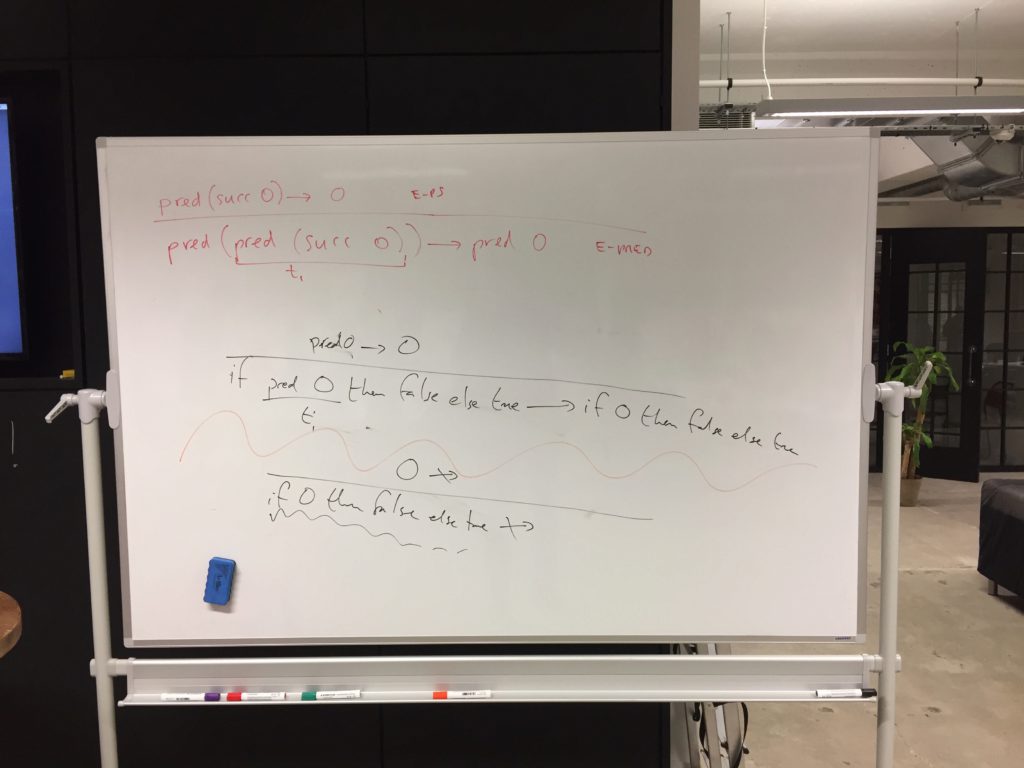 pred (succ 0) → 0 E-PS
pred (pred (succ 0)) → pred 0 E-PRED
t₁
pred 0 → 0
if pred 0 then false else true → if 0 then false else true
t₁
0 ↛
if 0 then false else true ↛